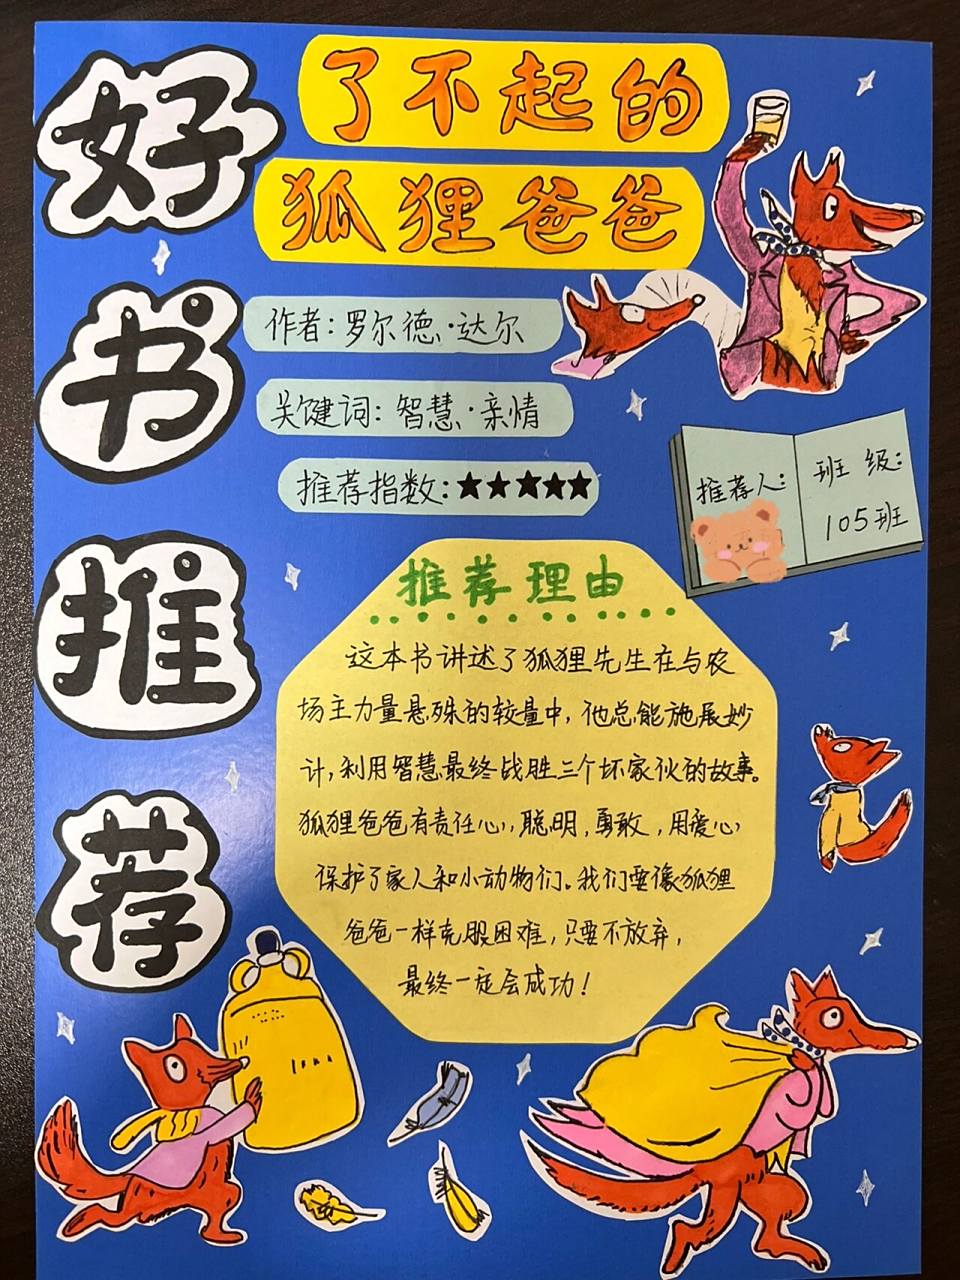 好书推荐
了不起的
狐狸爸爸
作者：罗尔德·达尔
关键词：智慧·亲情
推荐指数：★★★★★
推荐人：
班级：
105班
推荐理由
这本书讲述了狐狸先生在与农
场主力量悬殊的较量中，他总能施展妙
计，利用智慧最终战胜三个坏家伙的故事。
狐狸爸爸有责任心，聪明，勇敢，用爱心
保护了家人和小动物们。我们要像狐狸
爸爸一样克服困难，只要不放弃，
最终一定会成功！